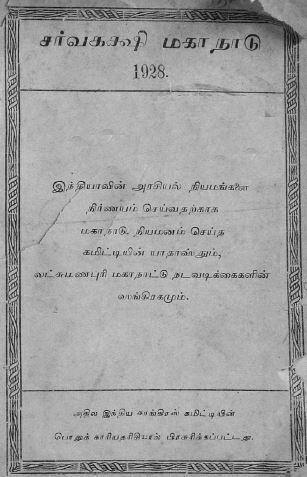 சர்வகக்ஷி மகாநாடு
1928.
இந்தியாவின் அரசியல் நியமங்களை
நிர்ணயம் செய்வதற்காக
மகாநாடு நியமனம் செய்த
கமிட்டியின் யாதாஸ்தும்,
லட்சுமணபுரி மகாநாட்டு நடவடிக்கைகளின்
ஸங்கிரகமும்.
அகில இந்திய காங்கிரஸ் கமிட்டியின்
பொதுக் காரியதரிசியால் பிரசுரிக்கப்பட்டது.